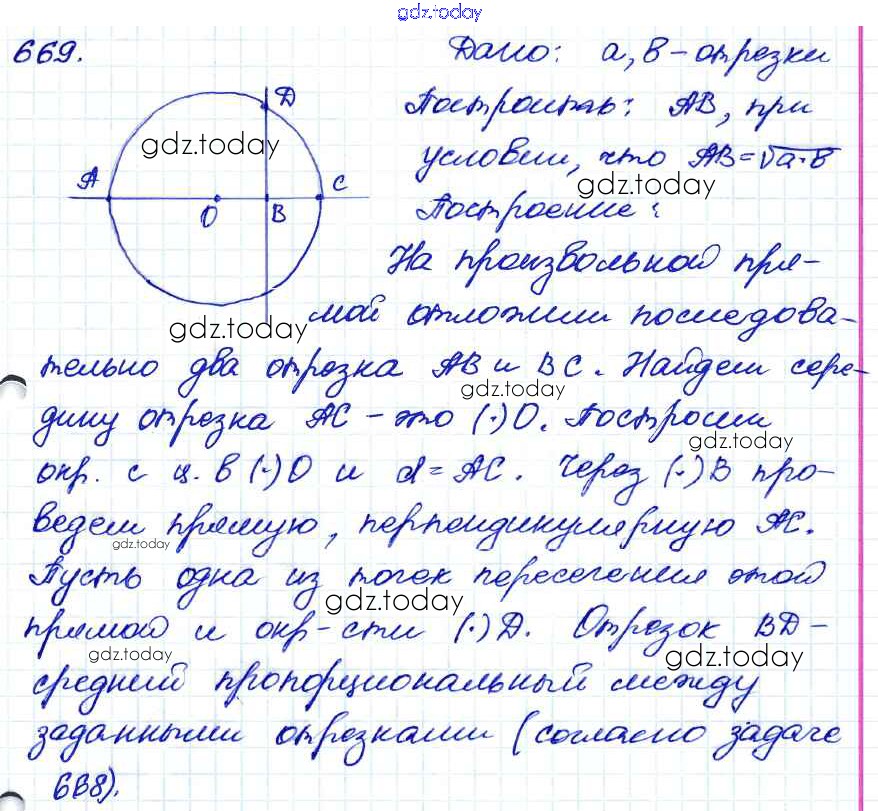 gdz.today
669. Дано: а, в – отрезки
Построить: АВ, при
условии, что АВ=√а·в
Построение:
На произвольной пря-
мой отложим последова-
тельно два отрезка АВ и ВС. Найдем сере-
дину отрезка АС – это (·)О. Построим
окр. с ц. в (·)О и d=АС. Через (·)В про-
ведем прямую, перпендикулярную АС.
Пусть одна из точек пересечения этой
прямой и окр-сти (·)D. Отрезок BD –
средний пропорциональный между
заданными отрезками (согласно задаче
668).
D
A
O
B
C
gdz.today
gdz.today
gdz.today
gdz.today
gdz.today
gdz.today
gdz.today
gdz.today
gdz.today